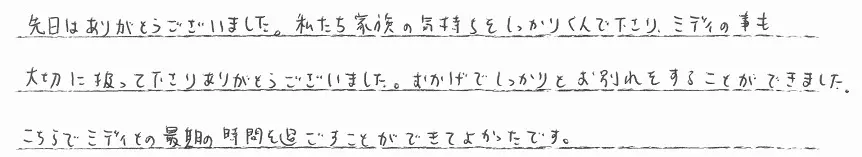 先日はありがとうございました。私たち家族の気持ちをしっかりくんで下さり、ミディの事も
大切に扱って下さりありがとうございました。おかげでしっかりとお別れをすることができました。
こちらでミディとの最期の時間を過ごすことができてよかったです。